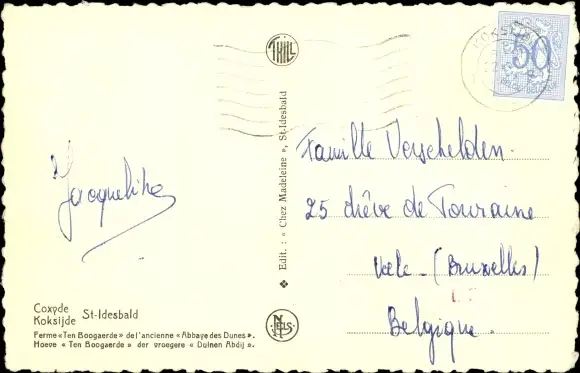 THILL
KOKSIJDE
50
Jacqueline
Famille Verschelden.
25 drêve de Touraine
(Bruxelles)
Belgique.
Edit. : « Chez Madeleine », St-Idesbald
NELS
Coxyde
Koksijde St-Idesbald
Ferme «Ten Boogaerde» de l'ancienne «Abbaye des Dunes».
Hoeve «Ten Boogaerde» der vroegere «Duinen Abdij».